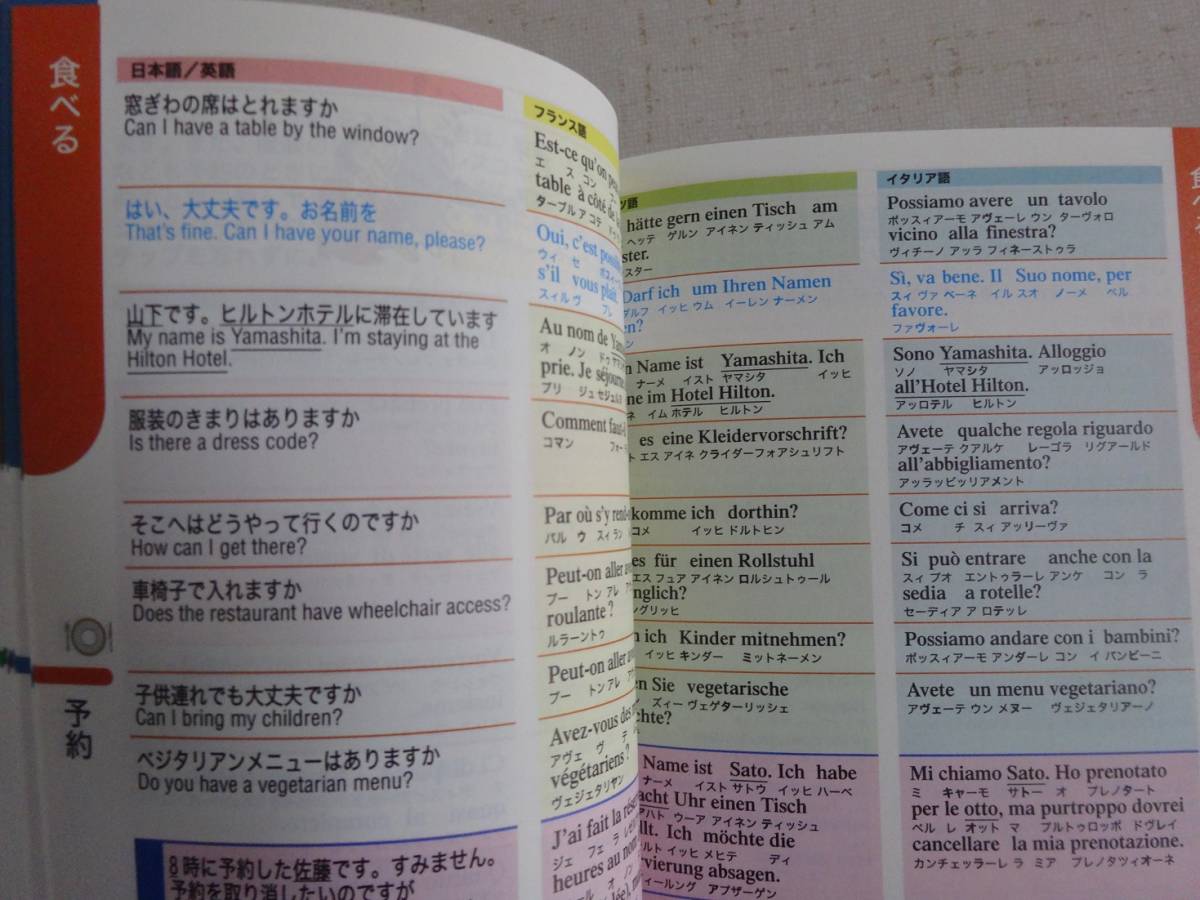 食べる
予約
日本語／英語
窓ぎわの席はとれますか
Can I have a table by the window?
はい、大丈夫です。お名前を
That's fine. Can I have your name, please?
山下です。ヒルトンホテルに滞在しています
My name is Yamashita. I'm staying at the
Hilton Hotel.
服装のきまりはありますか
Is there a dress code?
そこへはどうやって行くのですか
How can I get there?
車椅子で入れますか
Does the restaurant have wheelchair access?
子供連れでも大丈夫ですか
Can I bring my children?
ベジタリアンメニューはありますか
Do you have a vegetarian menu?
8時に予約した佐藤です。すみません。
予約を取り消したいのですが
フランス語
Est-ce qu'on
エ ス コン
table à côté de
ターブル ア コテ
Oui, c'est
ウィ セ
s'il vous plaît.
スィル ヴ プレ
Au nom de
オ ノン ドゥ
prie. Je séjourne
プリ ジュ セジュルヌ
Comment
コマン
Par où s'y
パル ウ スィ ラン
Peut-on aller
プー トン アレ
roulante ?
ルラーントゥ
Peut-on aller
プー トン アレ
Avez-vous des
アヴェ ヴ デ
végétariens ?
ヴェジェタリヤン
J'ai fait la
ジェ フェ ラ
heures au nom
ル オ ノン
hätte gern einen Tisch am
ヘッテ ゲルン アイネン ティッシュ アム
ster.
スター
Darf ich um Ihren Namen
ダルフ イッヒ ウム イーレン ナーメン
en?
Name ist Yamashita. Ich
ナーメ イスト ヤマシタ イッヒ
ne im Hotel Hilton.
ネ イム ホテル ヒルトン
es eine Kleidervorschrift?
ト エス アイネ クライダーフォアシュリフト
komme ich dorthin?
コメ イッヒ ドルトヒン
es für einen Rollstuhl
エス フュア アイネン ロルシュトゥール
nglich?
ングリッヒ
n ich Kinder mitnehmen?
イッヒ キンダー ミットネーメン
en Sie vegetarische
ズィー ヴェゲターリッシェ
chte?
Name ist Sato. Ich habe
ナーメ イスト サトウ イッヒ ハーベ
acht Uhr einen Tisch
アハト ウーア アイネン ティッシュ
llt. Ich möchte die
ルト イッヒ メヒテ ディ
vierung absagen.
ィールング アプザーゲン
イタリア語
Possiamo avere un tavolo
ポッスィアーモ アヴェーレ ウン ターヴォロ
vicino alla finestra?
ヴィチーノ アッラ フィネーストゥラ
Sì, va bene. Il Suo nome, per
スィ ヴァ ベーネ イル スオ ノーメ ペル
favore.
ファヴォーレ
Sono Yamashita. Alloggio
ソノ ヤマシタ アッロッジョ
all'Hotel Hilton.
アッロテル ヒルトン
Avete qualche regola riguardo
アヴェーテ クアルケ レーゴラ リグアールド
all'abbigliamento?
アッラッビッリアメント
Come ci si arriva?
コメ チ スィ アッリーヴァ
Si può entrare anche con la
スィ プオ エントゥラーレ アンケ コン ラ
sedia a rotelle?
セーディア ア ロテッレ
Possiamo andare con i bambini?
ポッスィアーモ アンダーレ コン イ バンビーニ
Avete un menu vegetariano?
アヴェーテ ウン メヌー ヴェジェタリアーノ
Mi chiamo Sato. Ho prenotato
ミ キャーモ サトー オ プレノタート
per le otto, ma purtroppo dovrei
ペル レ オット マ プルトゥロッポ ドヴレイ
cancellare la mia prenotazione.
カンチェッラーレ ラ ミア プレノタツィオーネ